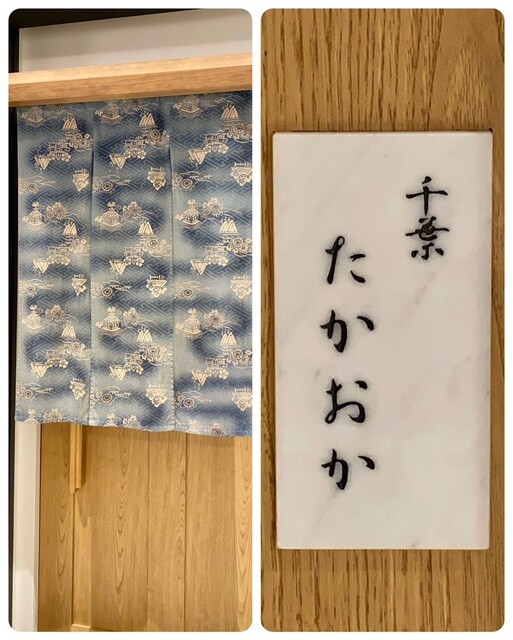 千葉
たかおか